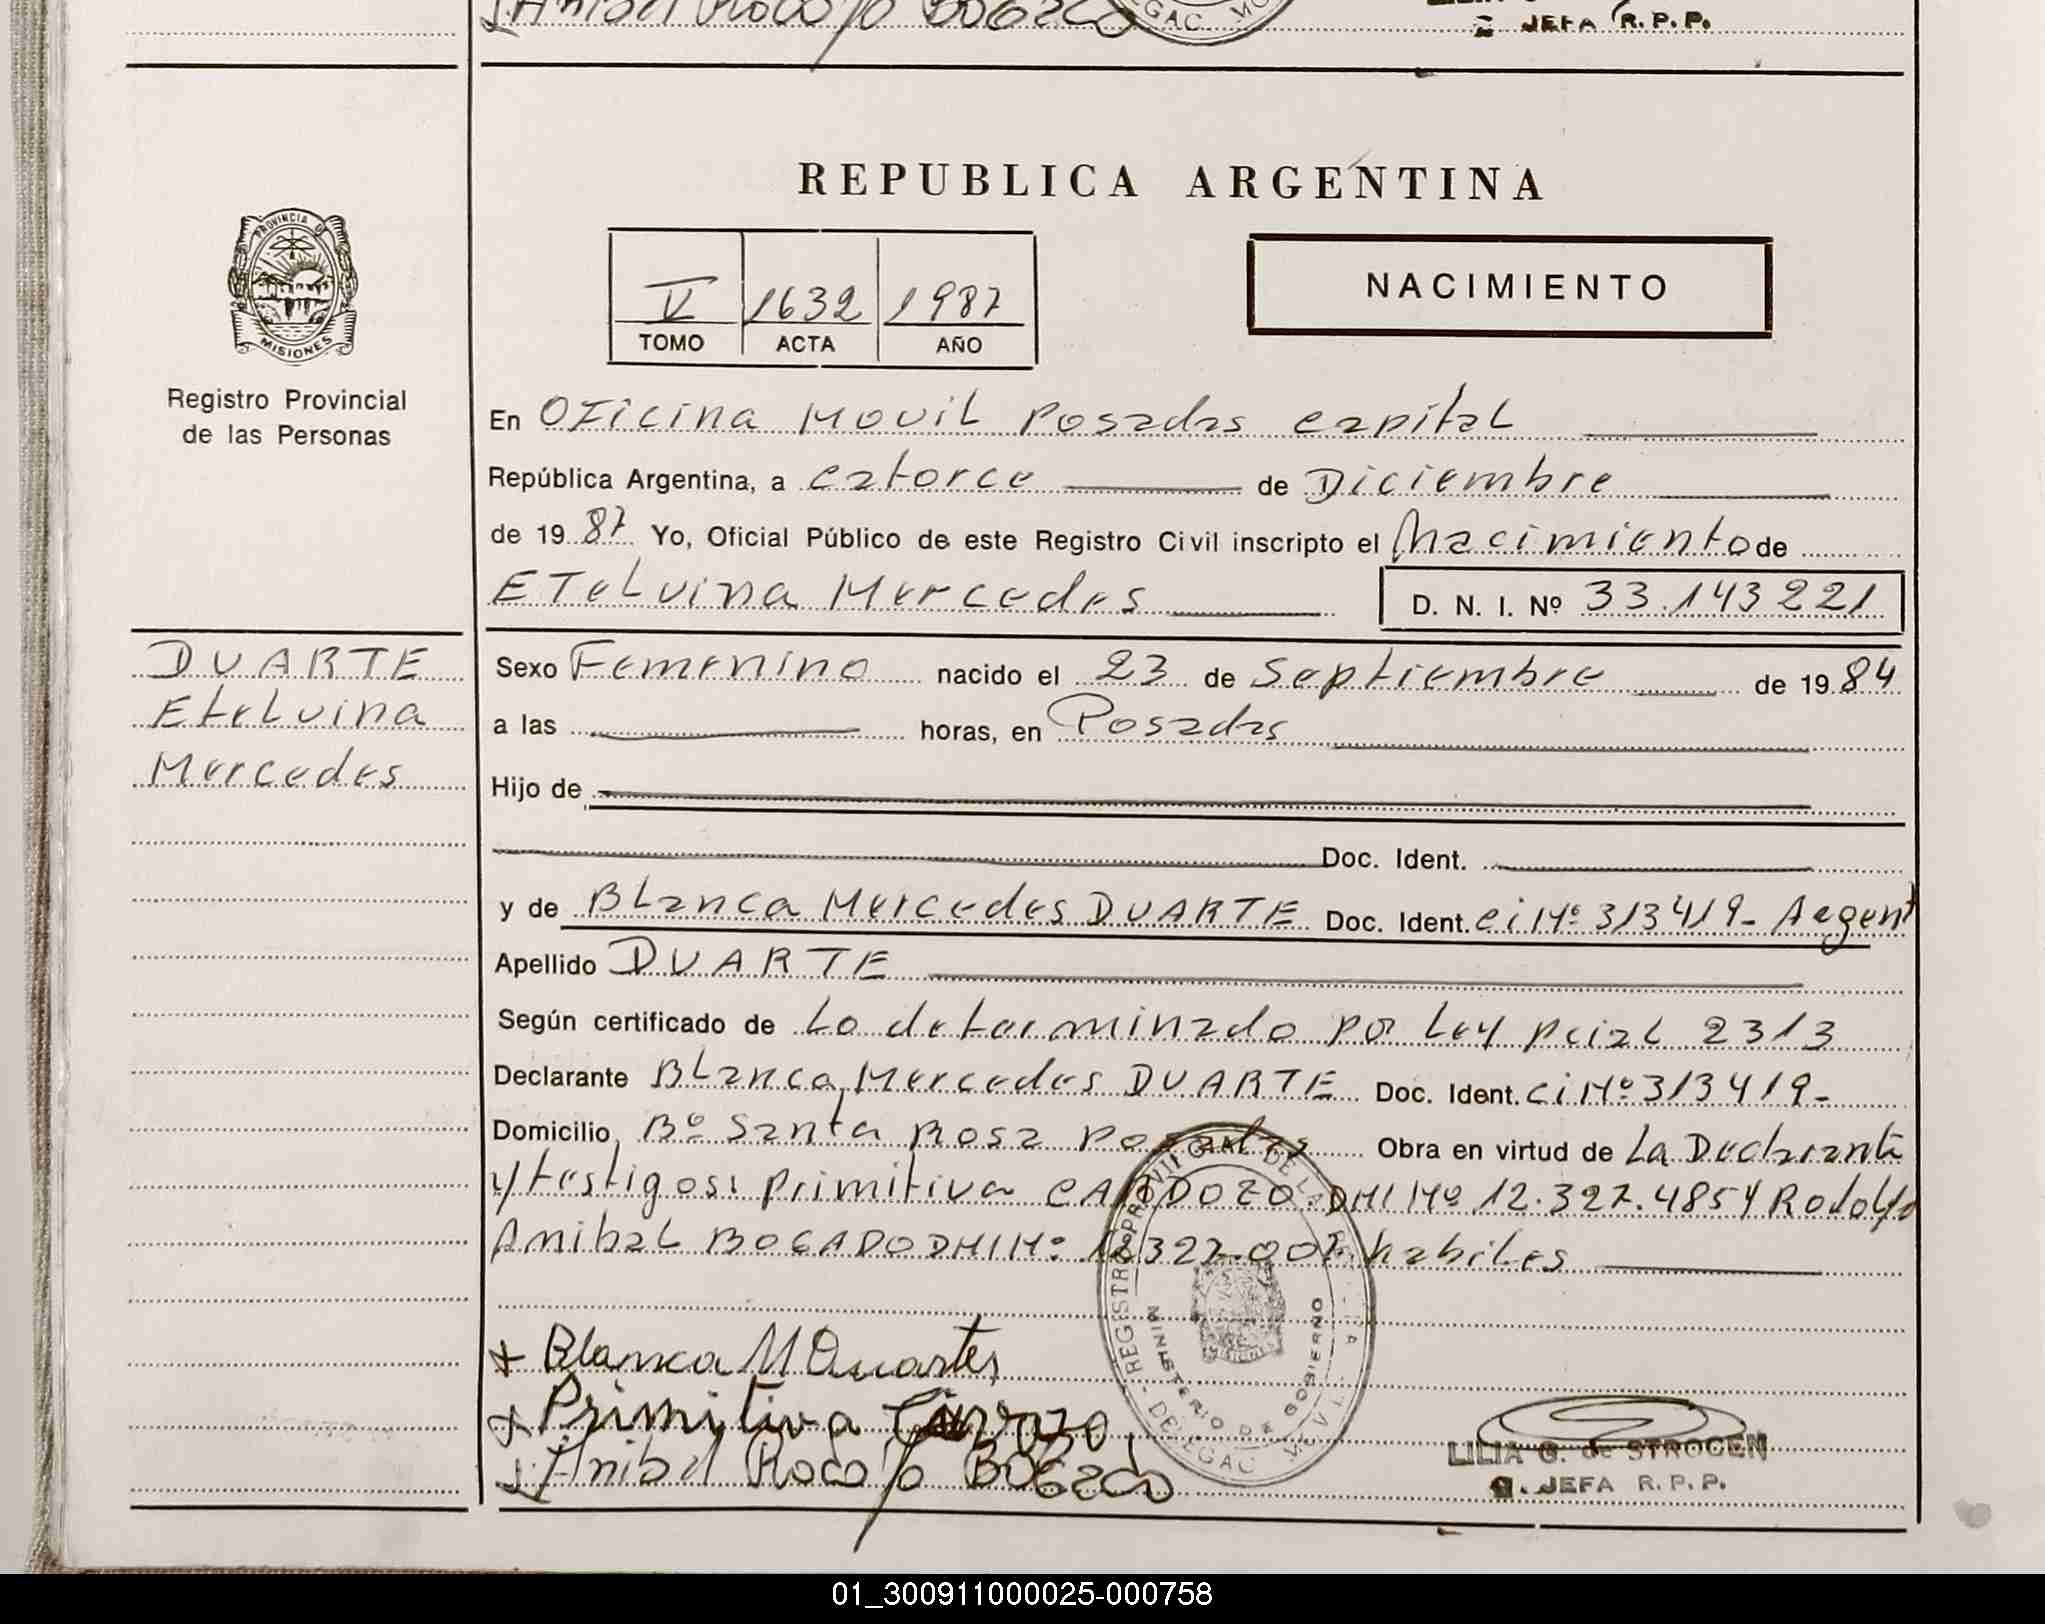 Anibal Rodolfo BOGADO
JEFA R.P.P.
REPUBLICA ARGENTINA
PROVINCIA DE
MISIONES
Registro Provincial
de las Personas
V 1632 1987
TOMO ACTA AÑO
NACIMIENTO
En Oficina Movil Posadas capital
República Argentina, a catorce de Diciembre
de 1987 Yo, Oficial Público de este Registro Civil inscripto el Nacimiento de
Etelvina Mercedes D. N. I. Nº 33.143221
DUARTE
Etelvina
Mercedes
Sexo Femenino nacido el 23 de Septiembre de 1984
a las horas, en Posadas
Hijo de
Doc. Ident.
y de Blanca Mercedes DUARTE Doc. Ident. ci Nº 313419- Argent
Apellido DUARTE
Según certificado de Lo determinado por Ley pcial 2313
Declarante Blanca Mercedes DUARTE Doc. Ident. ci Nº 313419-
Domicilio Bº Santa Rosa Posadas Obra en virtud de La Declarante
y testigos: primitiva CARDOZO DNI Nº 12.327.485 y Rodolfo
Anibal BOGADO DNI Nº 12322.007 habiles
Blanca M Duartes
Primitiva
Anibal Rodolfo BOGado
REGISTRO PROVINCIAL DE LAS
MINISTERIO DE GOBIERNO
DELEGAC. MOVIL
LILIA G. de STROCEN
JEFA R.P.P.
01_300911000025-000758